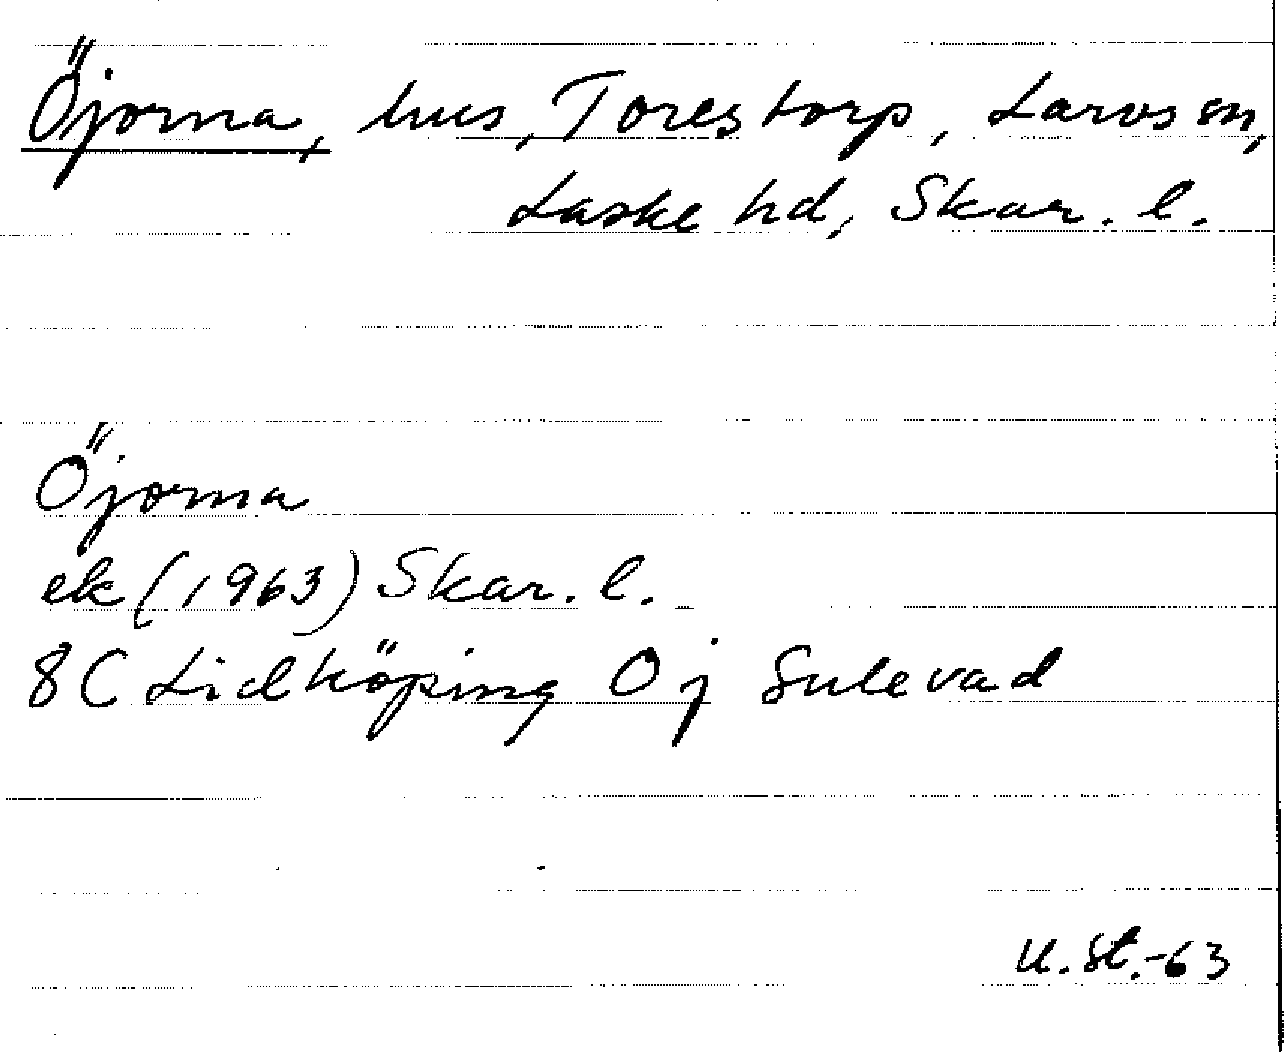 Öjorna, hus, Torestorp, Larvs sn,
Laske hd, Skar. l.
Öjorna
ek (1963) Skar. l.
8C Lidköping 0j Sulevad
U. St.-63